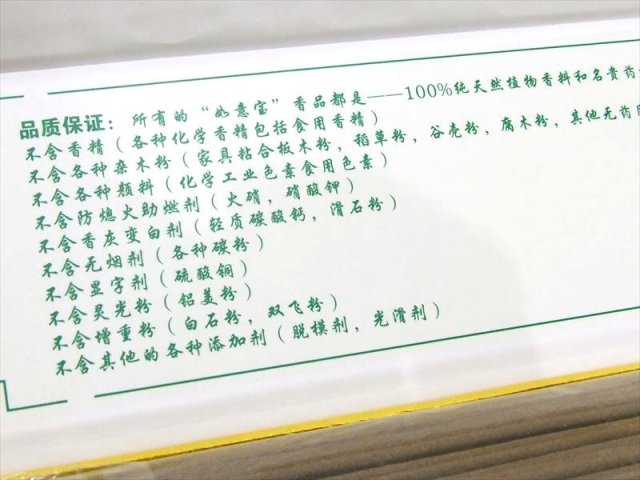 品质保证：所有的“如意宝”香品都是——100%纯天然植物香料和名贵药
不含香精（各种化学香精包括食用香精）
不含各种杂木粉（家具粘合板木粉，稻草粉，谷壳粉，腐木粉，其他无药
不含各种颜料（化学工业色素食用色素）
不含防熄火助燃剂（火硝，硝酸钾）
不含香灰变白剂（轻质碳酸钙，滑石粉）
不含无烟剂（各种碳粉）
不含显字剂（硫酸铜）
不含灵光粉（铝美粉）
不含增重粉（白石粉，双飞粉）
不含其他的各种添加剂（脱模剂，光滑剂）